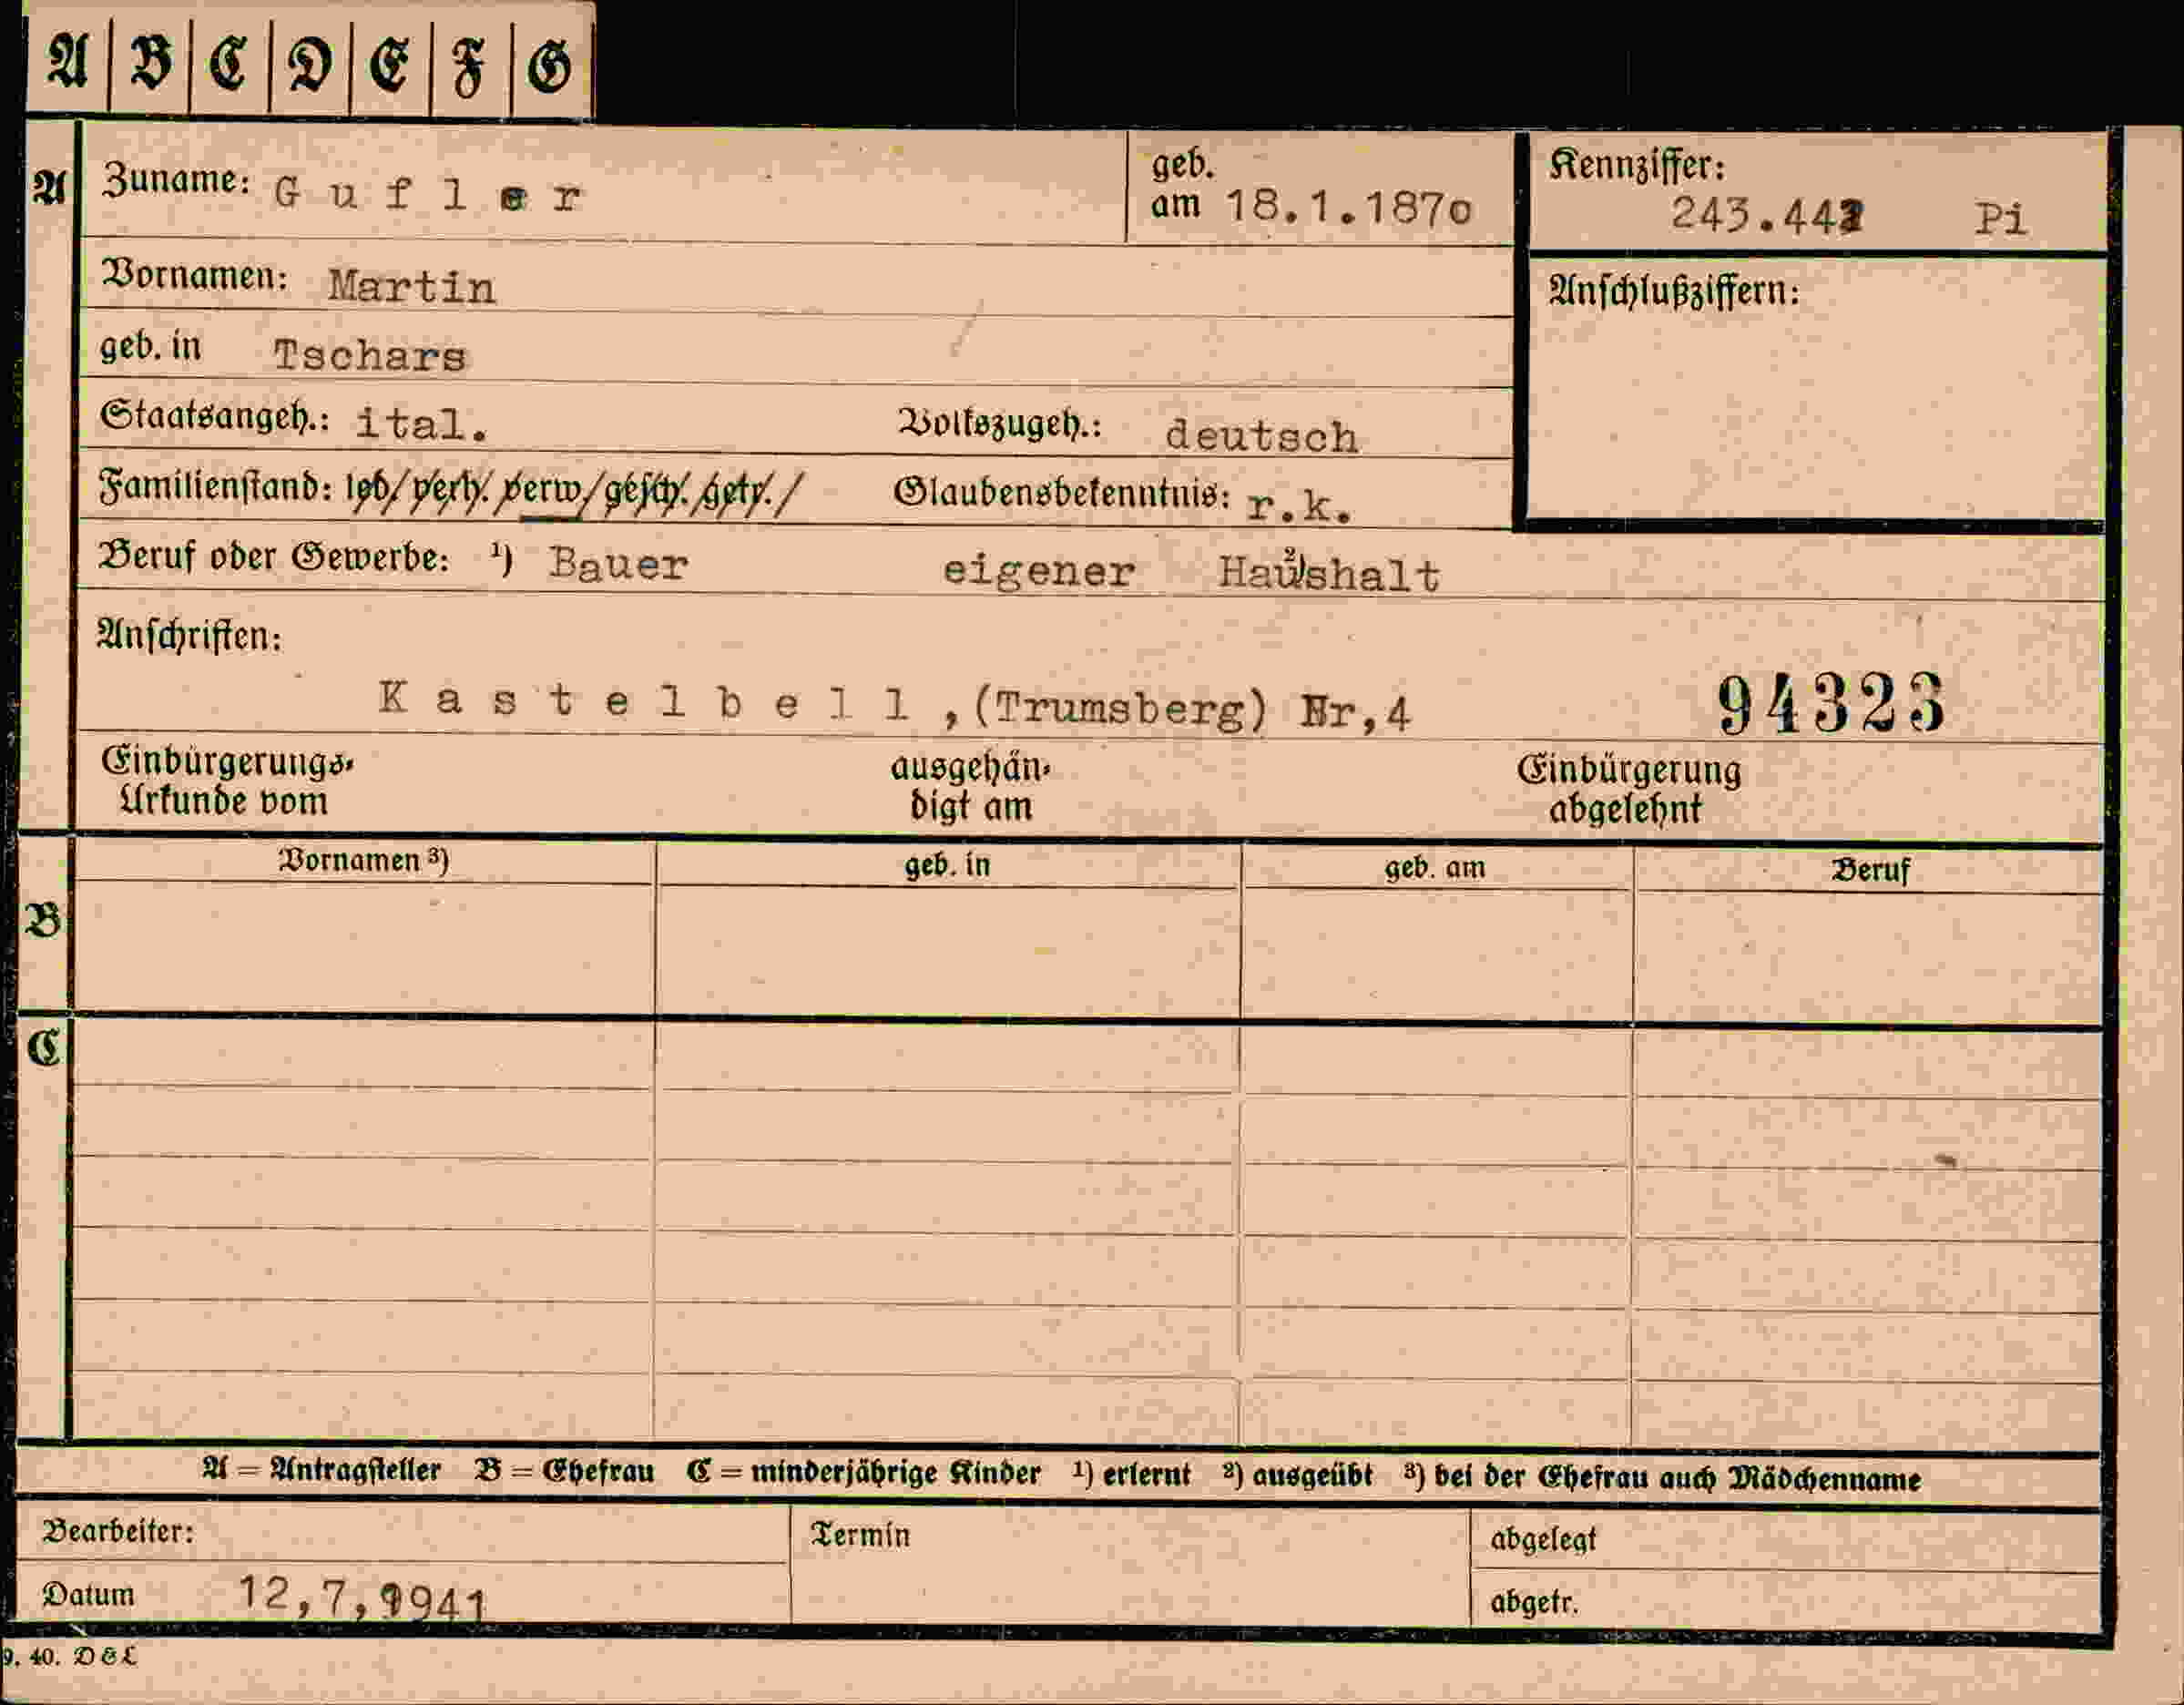 A B C D E F G
A Zuname: Gufler geb. am 18.1.1870 Kennziffer: 243.44 Pi
Vornamen: Martin Anschlußziffern:
geb. in Tschars
Staatsangeh.: ital. Volkszugeh.: deutsch
Familienstand: led/verh./verw/gesch./getr./ Glaubensbekenntnis: r.k.
Beruf oder Gewerbe: ¹) Bauer eigener ²) Haushalt
Anschriften:
Kastelbell,(Trumsberg) Nr,4 94323
Einbürgerungs- ausgehän- Einbürgerung
Urkunde vom digt am abgelehnt
Vornamen ³) geb. in geb. am Beruf
B
C
A = Antragsteller B = Ehefrau C = minderjährige Kinder ¹) erlernt ²) ausgeübt ³) bei der Ehefrau auch Mädchenname
Bearbeiter: Termin abgelegt
Datum 12,7,1941 abgetr.
9. 40. D&L